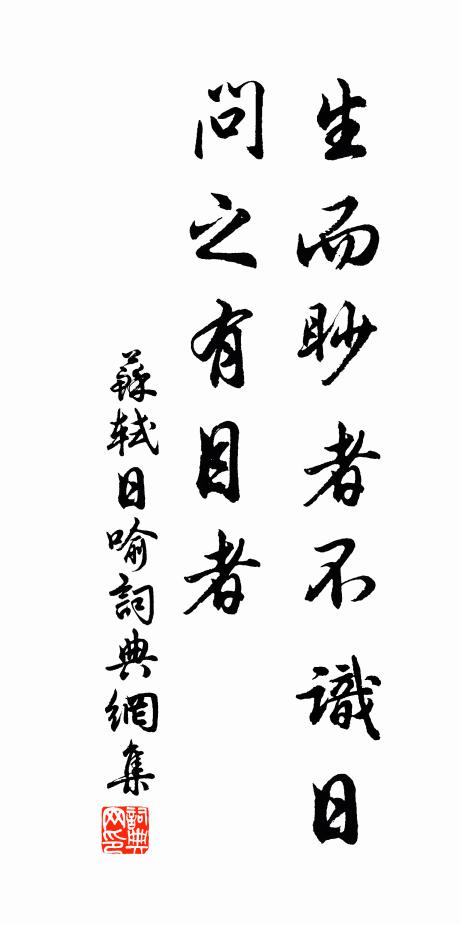 生而眇者不識日
問之有目者
蘇軾日喻詞典網集
詞典网印